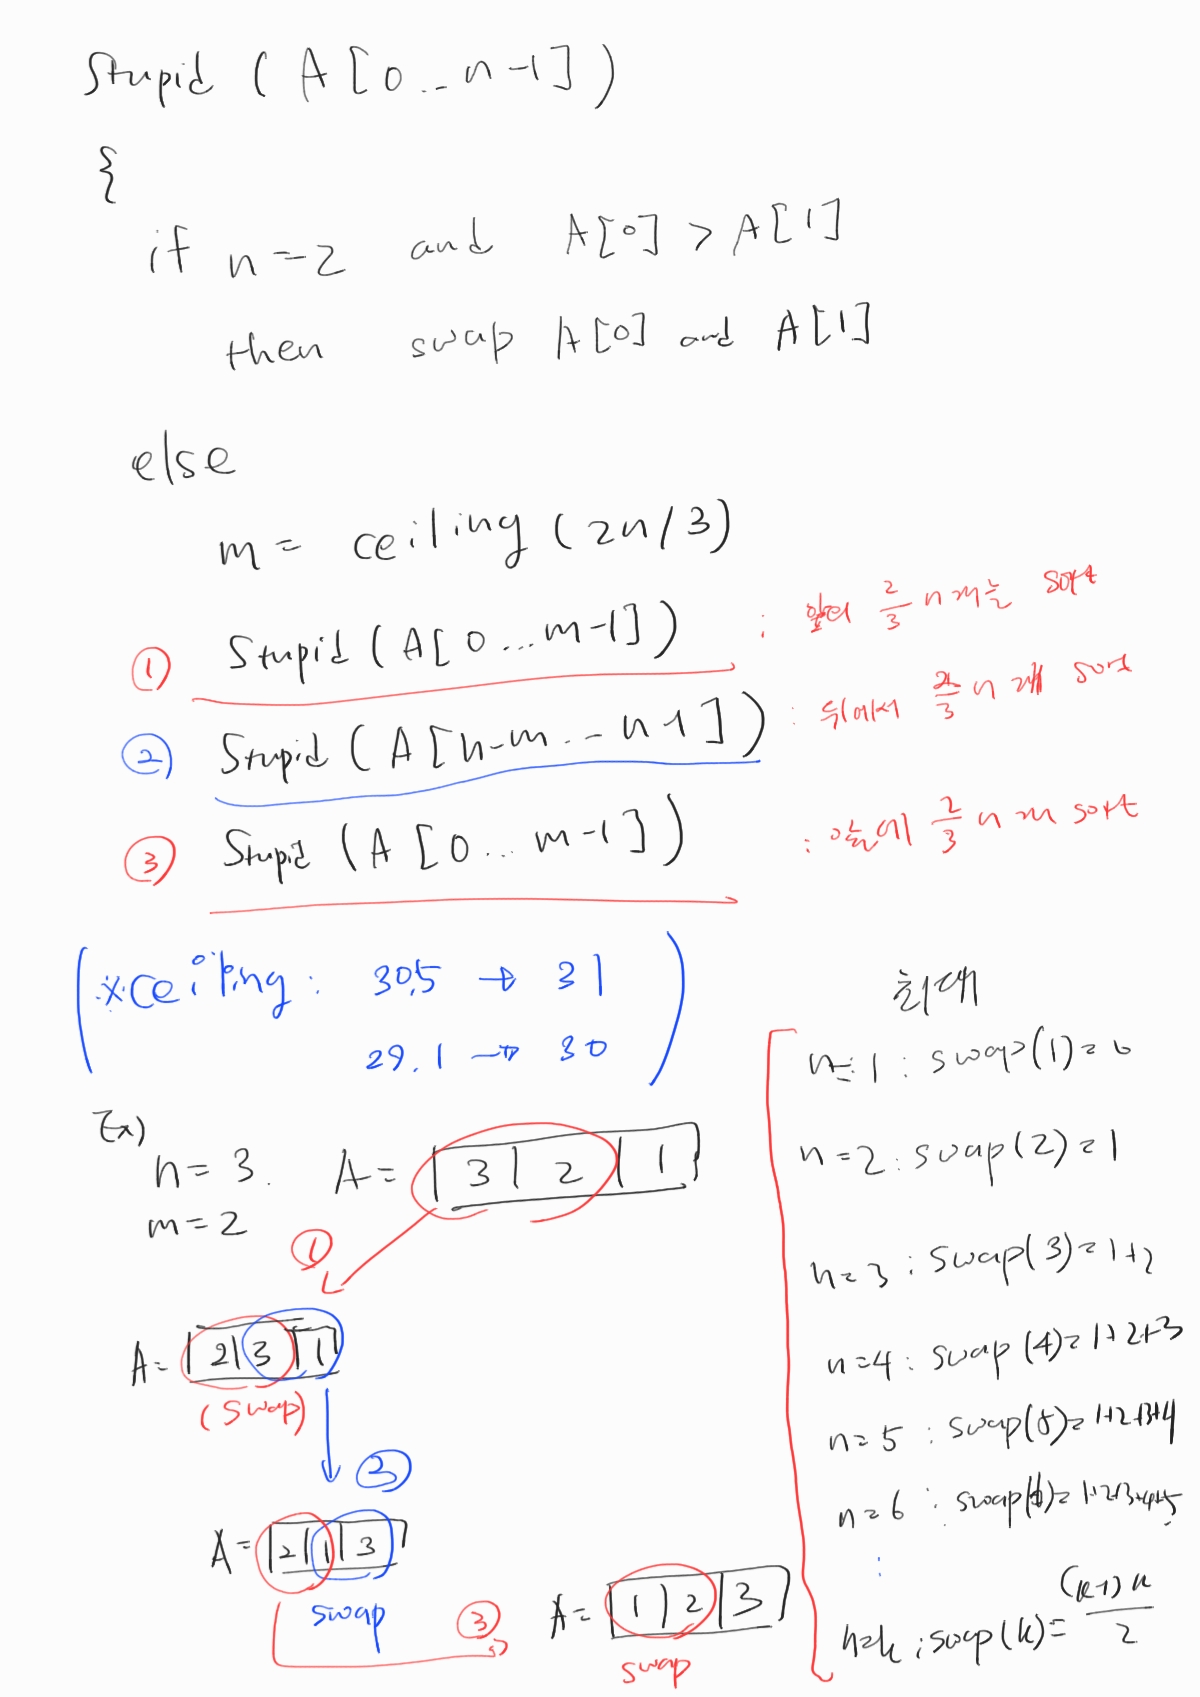 Stupid ( A [ 0 .. n-1 ] )
{
if n=2 and A[0] > A[1]
then swap A[0] and A[1]
else
m = ceiling ( 2n/3 )
① Stupid ( A [ 0 ... m-1 ] ) : 2/3 n 개는 sort
② Stupid ( A [ n-m .. n-1 ] ) : 뒤에서 2/3 n 개 sort
③ Stupid ( A [ 0 ... m-1 ] ) : 2/3 n sort
( ※ ceiling : 30.5 → 31
29.1 → 30 )
Ex)
n = 3
m = 2
A = | 3 | 2 | 1 |
①
A = | 2 | 3 | 1 |
(swap)
②
A = | 2 | 1 | 3 |
swap
③
A = | 1 | 2 | 3 |
swap
최대
n=1 : swap(1) = 0
n=2 : swap(2) = 1
n=3 : swap(3) = 1+2
n=4 : swap(4) = 1+2+3
n=5 : swap(5) = 1+2+3+4
n=6 : swap(6) = 1+2+3+4+5
⋮
n=k ; swap(k) = (k-1)k/2